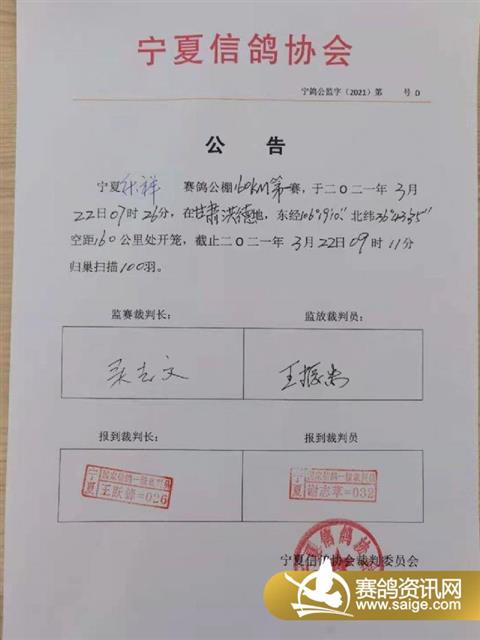 宁夏信鸽协会
宁鸽公监字（2021）第 号 0
公 告
宁夏 祥 赛鸽公棚160KM第一赛，于二〇二一年 3月
22日07时26分，在甘肃洪德地，东经106°19'10" 北纬36°43'35"
空距160公里处开笼，截止二〇二一年 3月22日09时 11分
归巢扫描100羽。
监赛裁判长：
监放裁判员：
文
王振
报到裁判长：
报到裁判员
宁夏 国家信鸽一级裁判员
王跃 =026
宁夏 国家信鸽一级裁判员
谢志 =032
宁夏信鸽协会裁判委员会
赛鸽资讯网
www.saige.com